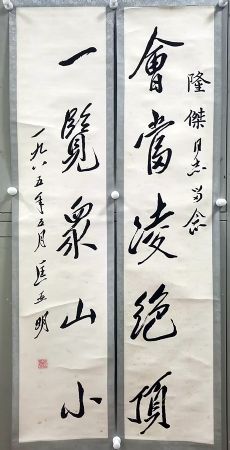 隆傑同志留念
會當凌絕頂
一覽眾山小
一九八五年五月匡亚明